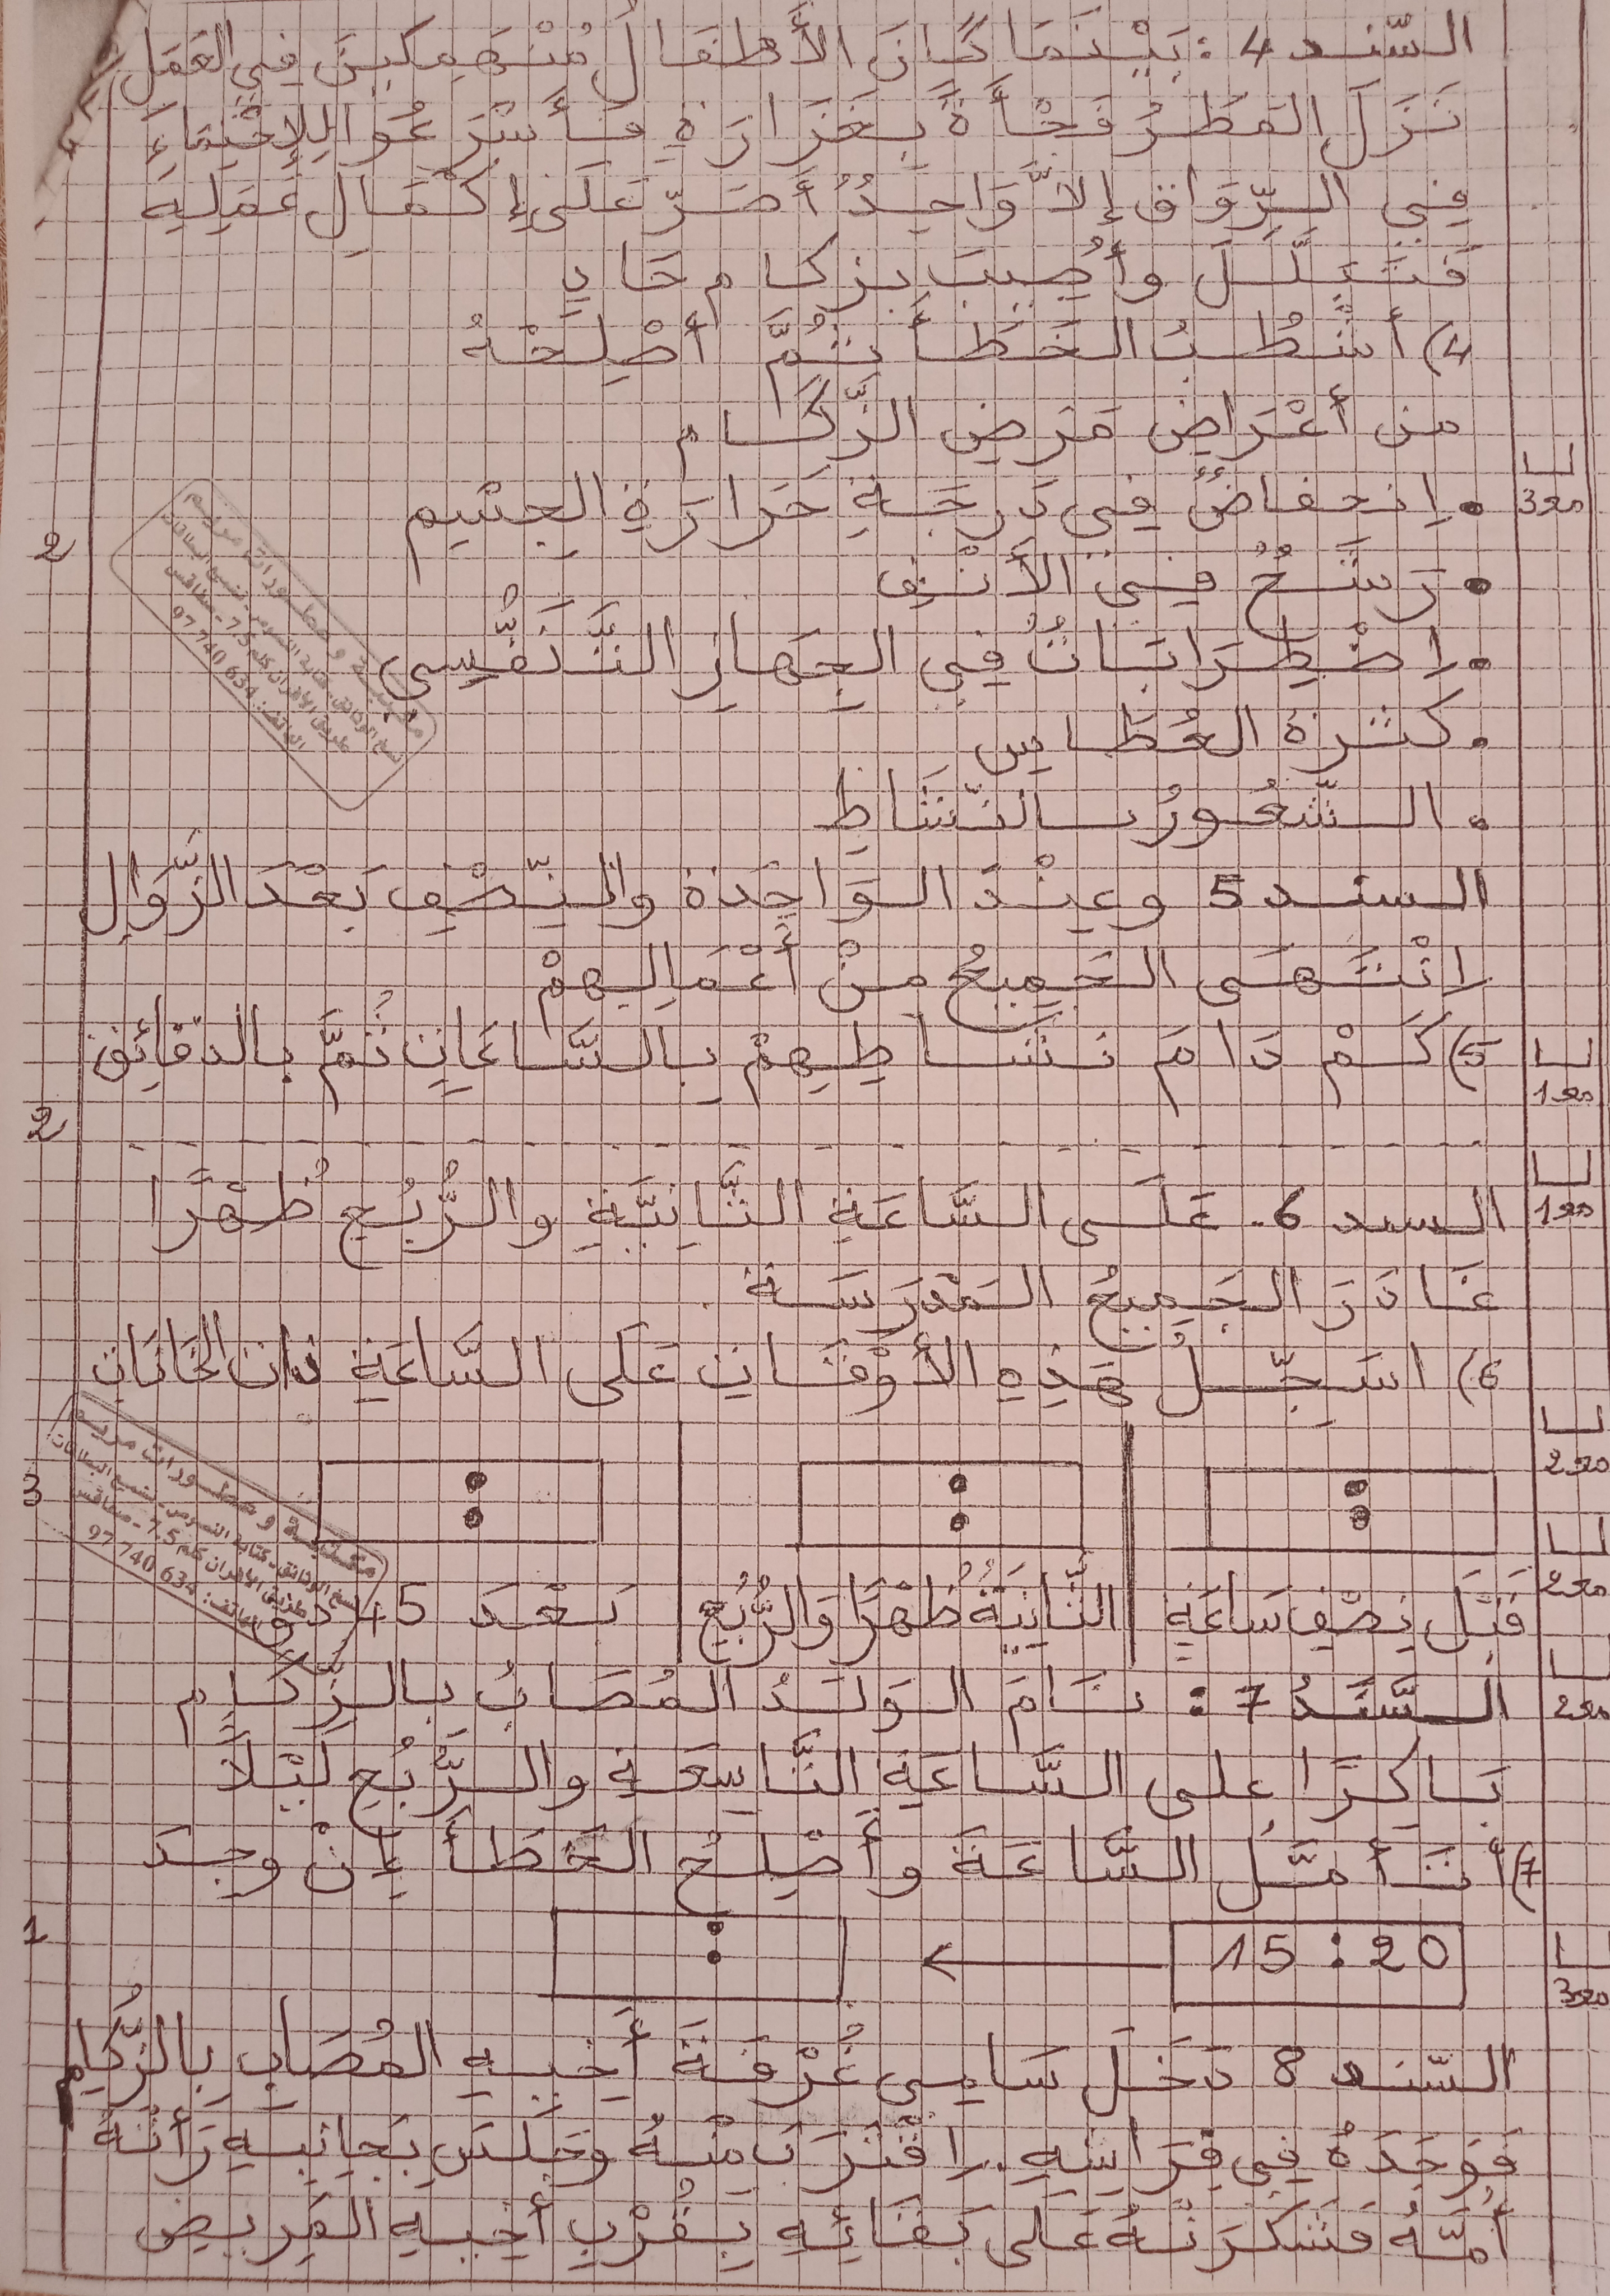 السّند 4 : بَيْنَمَا كَانَ الأَطْفَالُ مُنْهَمِكِينَ فِي العَمَلِ
نَزَلَ المَطَرُ فَجْأَةً بِغَزَارَةٍ فَأَسْرَعُوا لِلِاحْتِمَاءِ
فِي الرِّوَاقِ إِلاَّ وَاحِدٌ أَصَرَّ عَلَى إِكْمَالِ عَمَلِهِ
فَتَبَلَّلَ وأُصِيبَ بزكام حَادٍ
4) أَشْطُبُ الخَطَأَ ثُمَّ أُصْلِحُهُ
مِن أَعْرَاضِ مَرَضِ الزُّكَام
• اِنخفاضٌ فِي دَرَجَةِ حَرَارَةِ الجِسْمِ
مع3
2
• رَشْحٌ فِي الأَنْفِ
• اِضْطِرَابَاتٌ فِي الجِهَازِ التَّنَفُّسِي
• كَثْرَةُ العُطَاسِ
• الشُّعُورُ بالنّشَاطِ
السند 5 وعِنْدَ الوَاحِدَةِ والنِّصْفِ بَعْدَ الزَّوَالِ
اِنْتَهَى الجَمِيعُ مِنْ أَعْمَالِهِمْ
5) كَمْ دَامَ نَشَاطِهِمْ بِالسَّاعَاتِ ثُمَّ بالدّقائِق
مع1
2
السند 6. عَلَى السَّاعَةِ الثَّانِيَّةِ والرُّبُعِ ظُهْرًا
مع1
غَادَرَ الجَمِيعُ المَدْرَسَة
6) اسَجِّلُ هَذِهِ الأَوْقَاتِ عَلَى السَّاعَةِ ذات الخَانَات
مع2
3
: : :
قَبْلَ نِصْفِ سَاعَةٍ الثَّانِيَةُ ظُهْرًا وَالرُّبُعِ بَعْدَ 15 دق
مع2
السَّنَدُ 7 : نَامَ الوَلَدُ المُصَابُ بِالزُّكَامِ
مع2
بَاكِرًا على السَّاعَةِ التَّاسِعَةِ والرُّبُعِ لَيْلاً
7) أَتَأَمَّلُ السَّاعَةَ وأُصْلِحُ الخَطَأَ إِنْ وجِدَ
1
15 : 20 ← :
مع3
السّند 8 دَخَلَ سَامِي غُرْفَةَ أَخِيهِ المُصَابِ بِالزُّكَامِ
فَوَجَدَهُ فِي فِرَاشِهِ. اِقْتَرَبَ مِنْهُ وَجَلَسَ بِجَانِبِهِ رَأَتْهُ
أُمّهُ فَشَكَرَتْهُ عَلَى بَقَائِهِ بِقُرْبِ أَخِيهِ المَرِيضِ
مكتبة و مطبوعات مريم
نسخ الوثائق - كتابة النصوص - نسخ البطاقات
طريق الأفران كلم 7.5 - صفاقس
الهاتف: 97 740 634
مكتبة و مطبوعات مريم
نسخ الوثائق - كتابة النصوص - نسخ البطاقات
طريق الأفران كلم 7.5 - صفاقس
الهاتف: 97 740 634